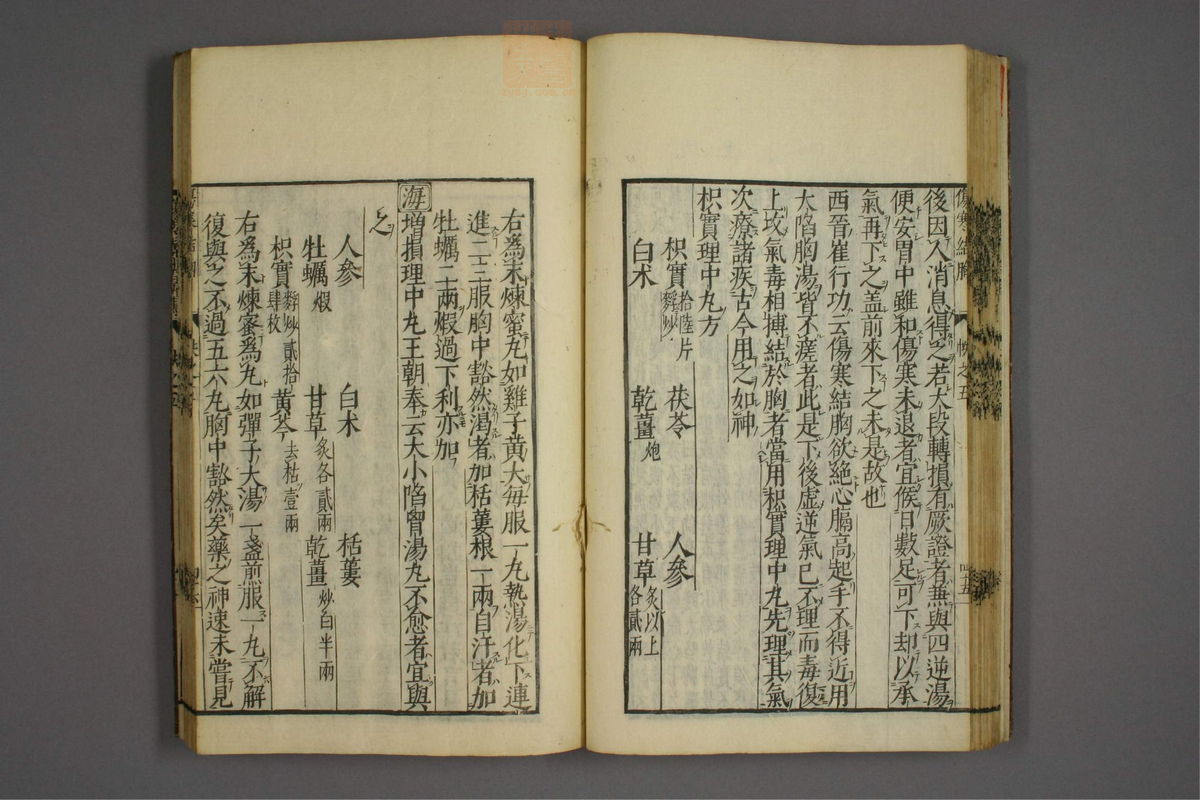 傷寒結胸
帙之五
四五
後因入消息得之若大段轉損有厥證者兼與四逆湯
便安胃中雖和傷寒未退者宜候日數足可下却以承
氣再下之盖前來下之未是故也
西晉崔行功云傷寒結胸欲絶心膈高起手不得近用
大陷胸湯皆不瘥者此是下後虚逆氣已不理而毒復
上攻氣毒相搏結於胸者當用枳實理中丸先理其氣
次療諸疾古今用之如神
枳實理中丸方
枳實拾陸片麩炒 茯苓 人參
白术 乾薑炮 甘草炙以上各貳兩
右爲末煉蜜丸如雞子黄大每服一丸熱湯化下連
進二三服胸中豁然渴者加栝蔞根一兩自汗者加
牡蠣二兩煅過下利亦加
海增損理中丸王朝奉云大小陷胷湯丸不愈者宜與
之
人參 白术 栝蔞
牡蠣煅 甘草炙各貳兩 乾薑炒白半兩
枳實麩炒貳拾肆枚 黄芩去枯壹兩
右爲末煉蜜爲丸如彈子大湯一盞煎服一丸不解
復與之不過五六丸胸中豁然矣藥之神速未嘗見